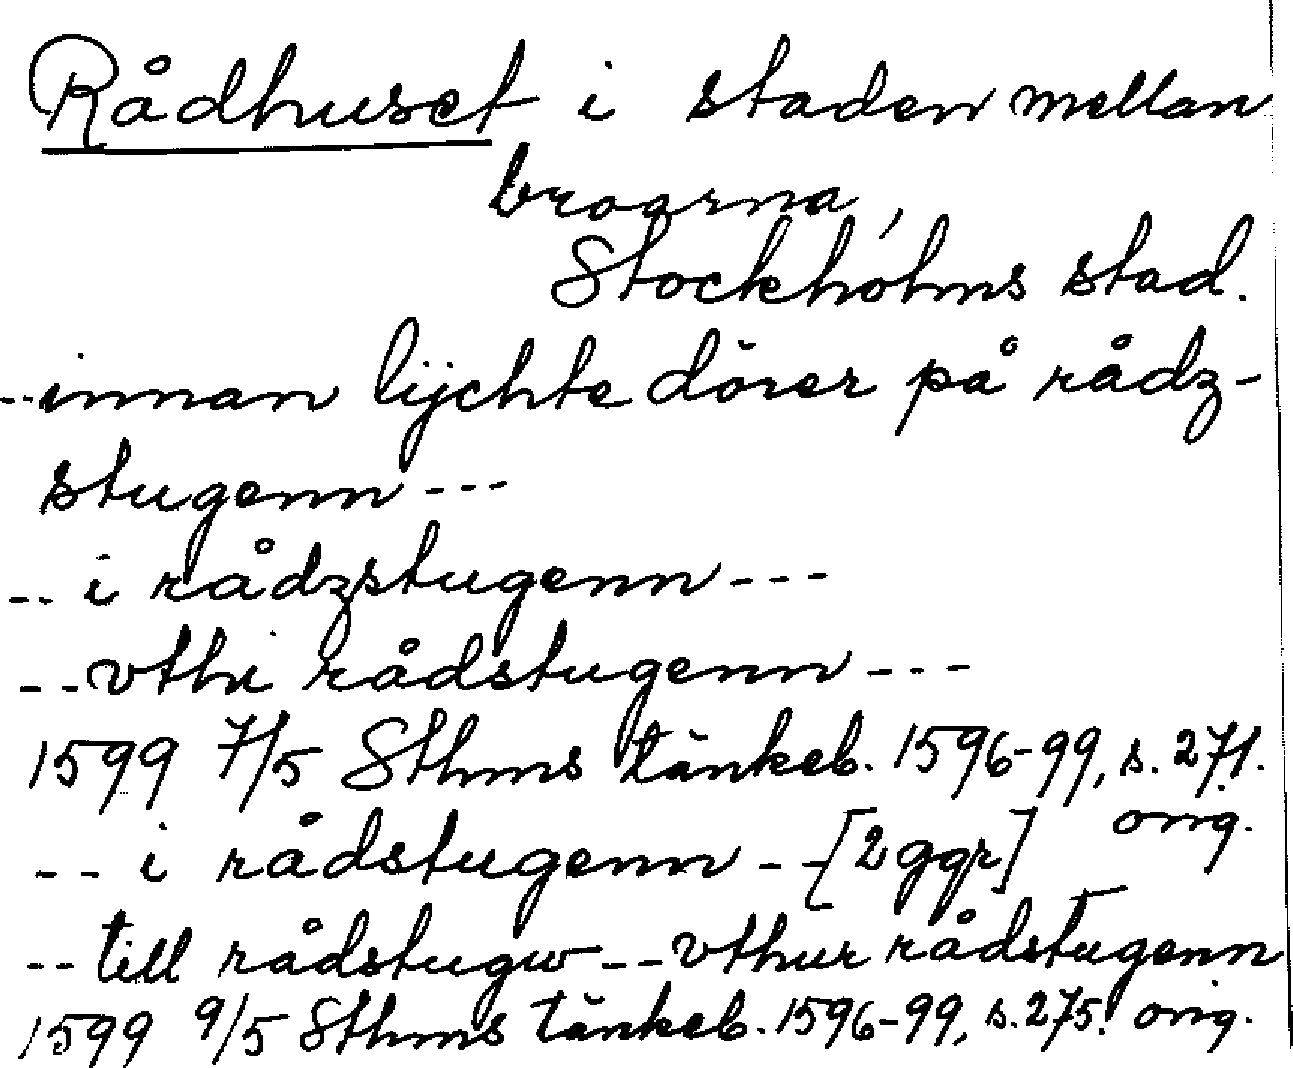 Rådhuset i staden mellan
broarna,
Stockholms stad.
--innan lijchte dörer på rådz-
stugenn---
-- i rådzstugenn---
--vthi rådstugenn---
1599 7/5 Sthms tänkeb. 1596-99, s. 271.
orig.
-- i rådstugenn--[2 ggr]
--till rådstugw--vthur rådstugenn
1599 9/5 Sthms tänkeb. 1596-99, s. 275. orig.